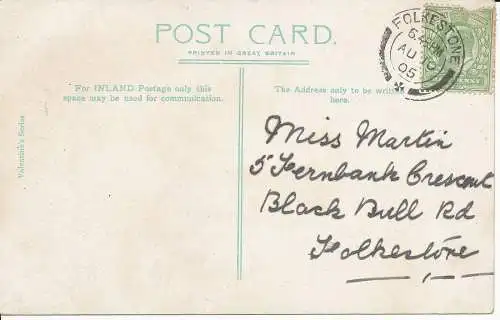 POST CARD.
PRINTED IN GREAT BRITAIN
For INLAND Postage only this
space may be used for communication.
The Address only to be
here.
Valentine's Series
FOLKESTONE
AU 10
05
Miss Martin
5 Fernbank Crescent
Black Bull Rd
Folkestone